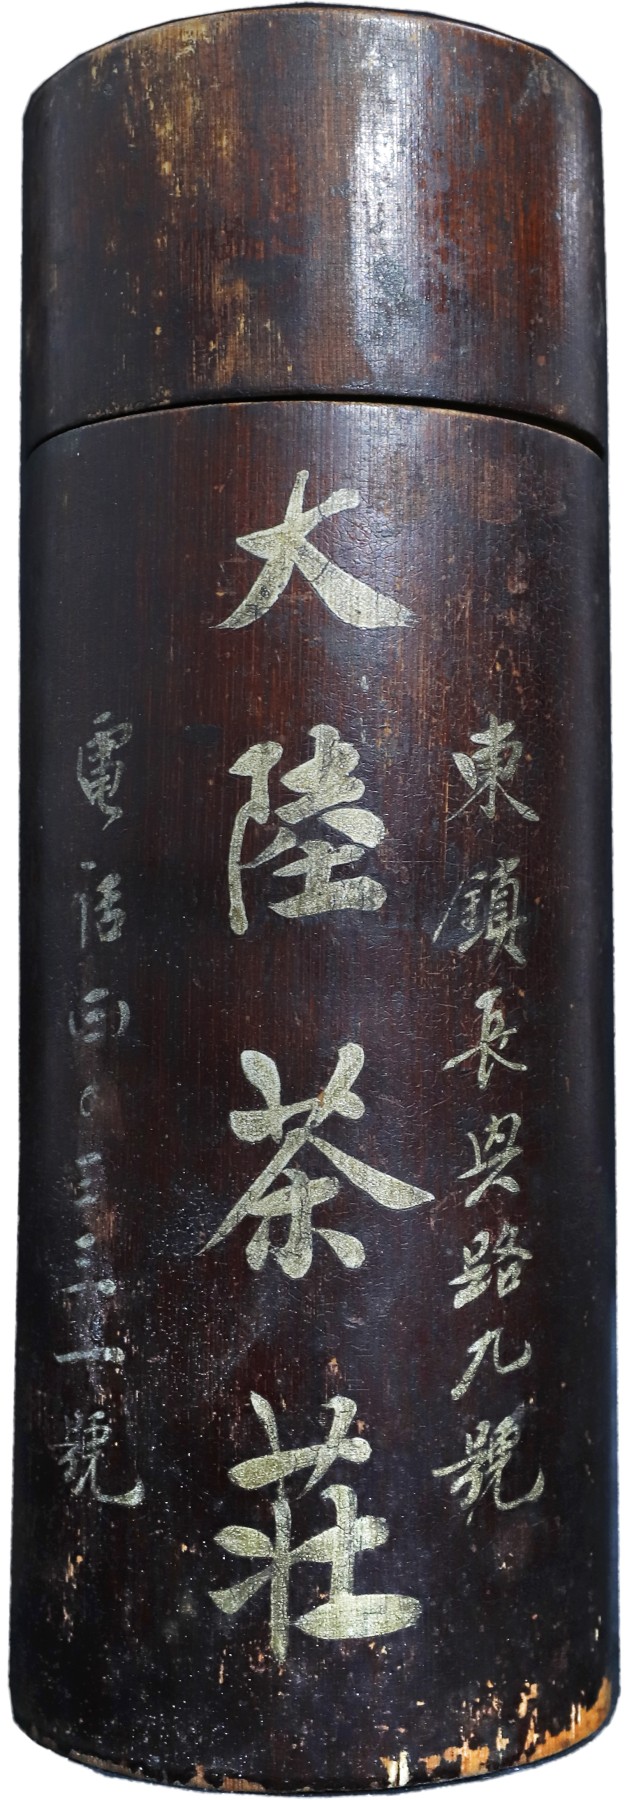 東鎮長興路九號
大陸茶莊
電話西〇三三一號